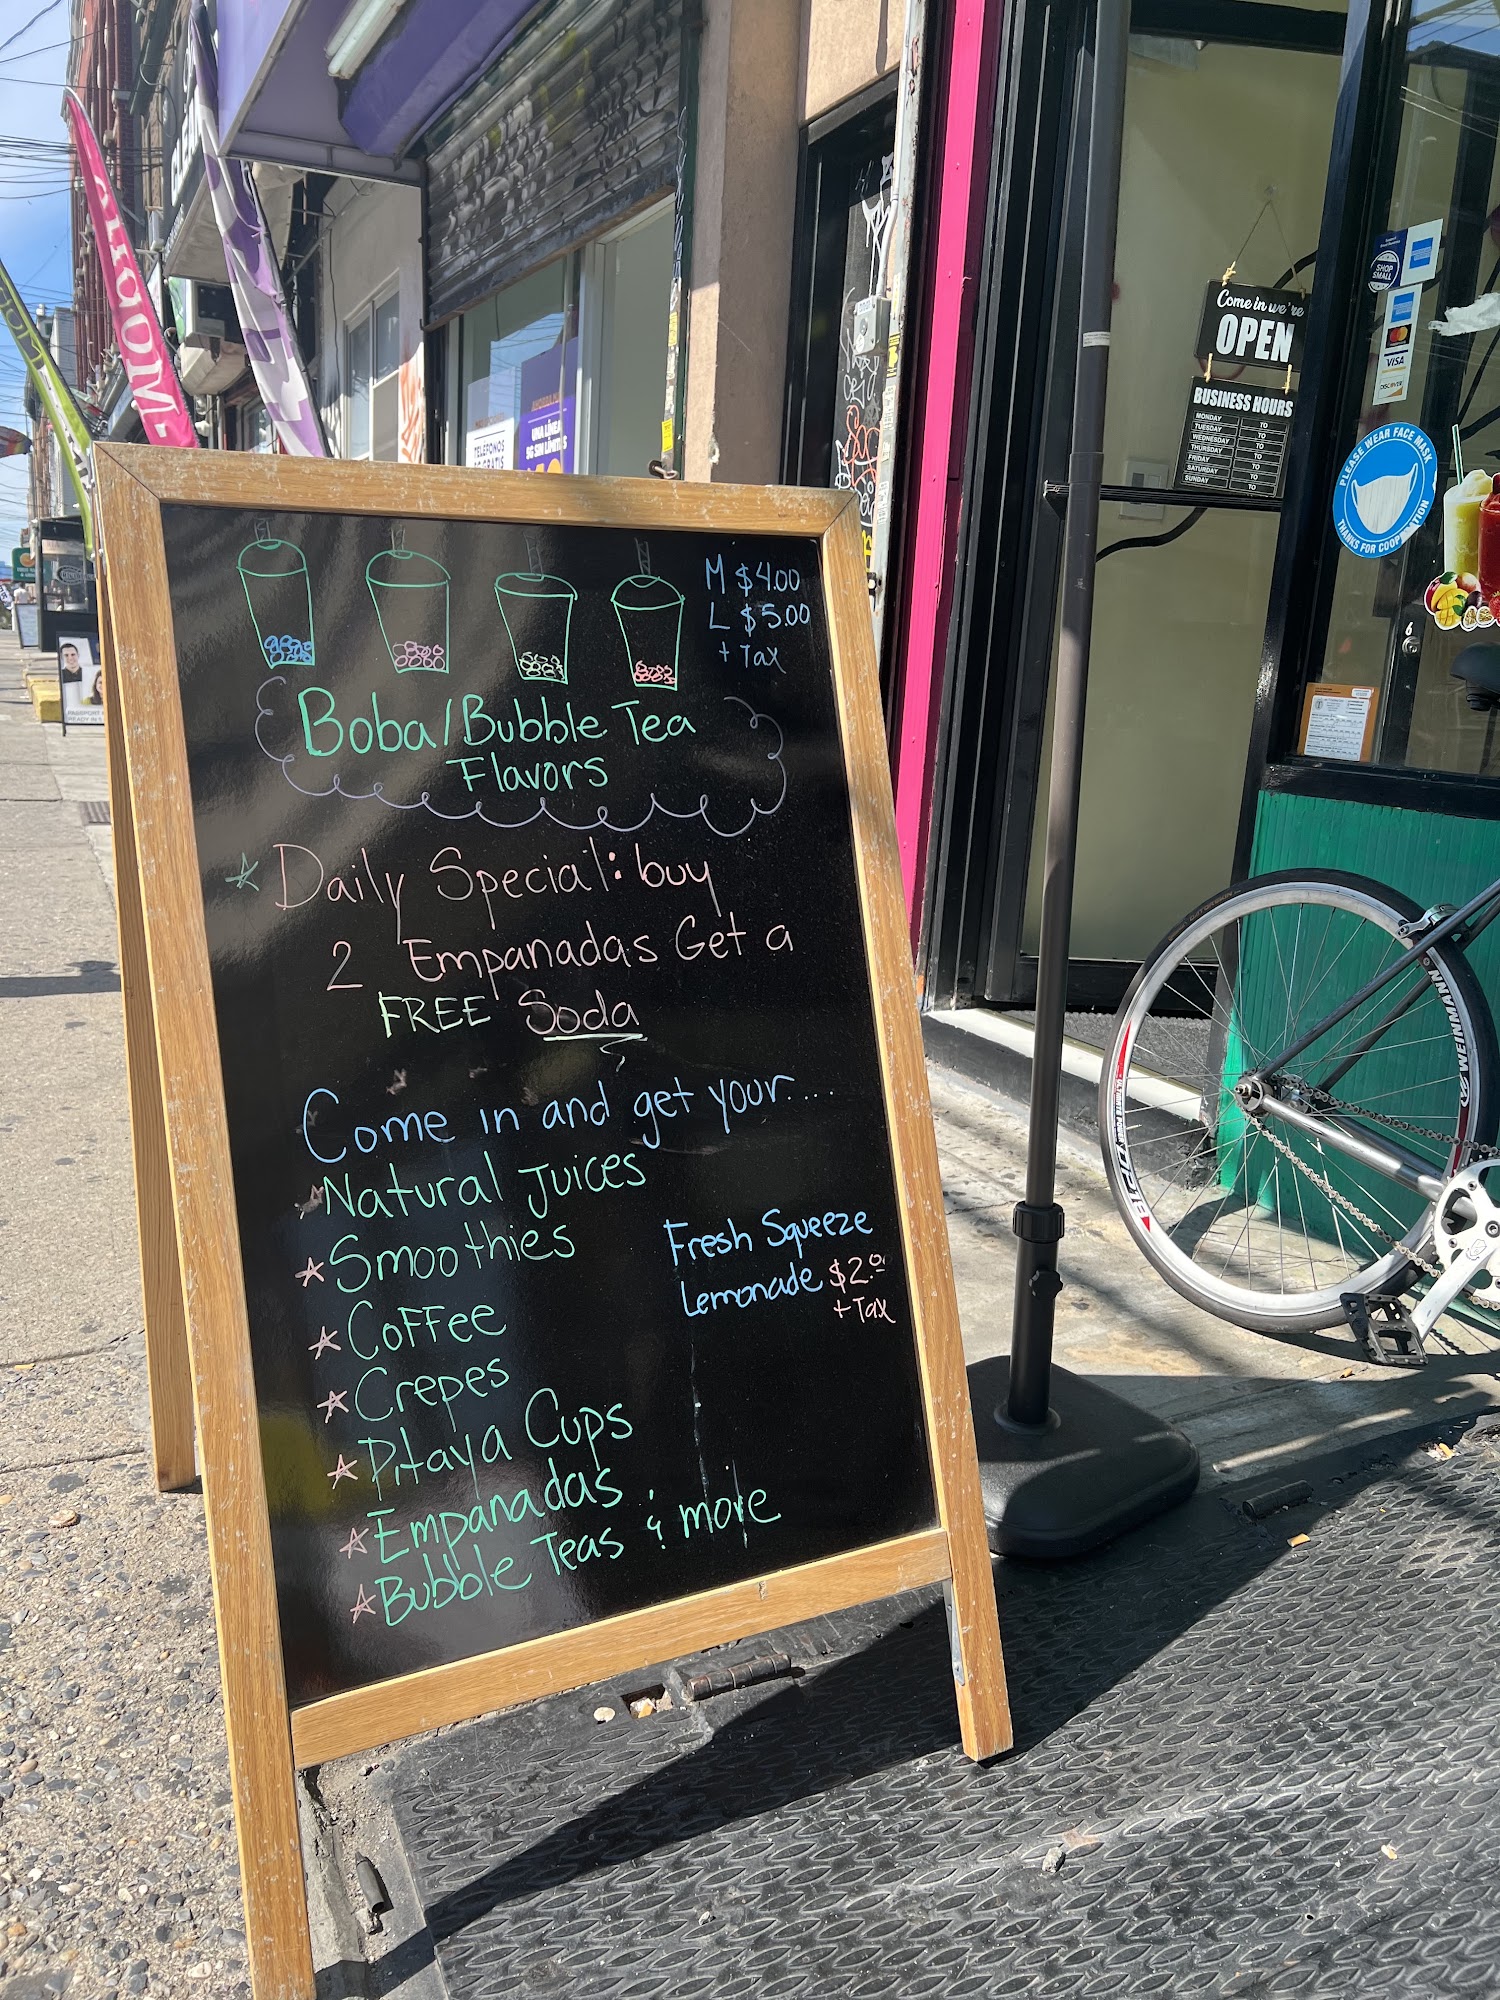 M $4.00
L $5.00
+ Tax
Boba/Bubble Tea
Flavors
Daily Special: buy
2 Empanadas Get a
FREE Soda
Come in and get your....
Natural Juices
Smoothies
Coffee
Crepes
Pitaya Cups
Empanadas
Bubble Teas & more
Fresh Squeeze
Lemonade $2.00
+ Tax
Come in we're
OPEN
BUSINESS HOURS
MONDAY TO
TUESDAY TO
WEDNESDAY TO
THURSDAY TO
FRIDAY TO
SATURDAY TO
SUNDAY TO
SHOP
SMALL
VISA
DISCOVER
PLEASE WEAR FACE MASK
THANKS FOR COOPERATION
6
UNA LÍNEA
WEINMANN